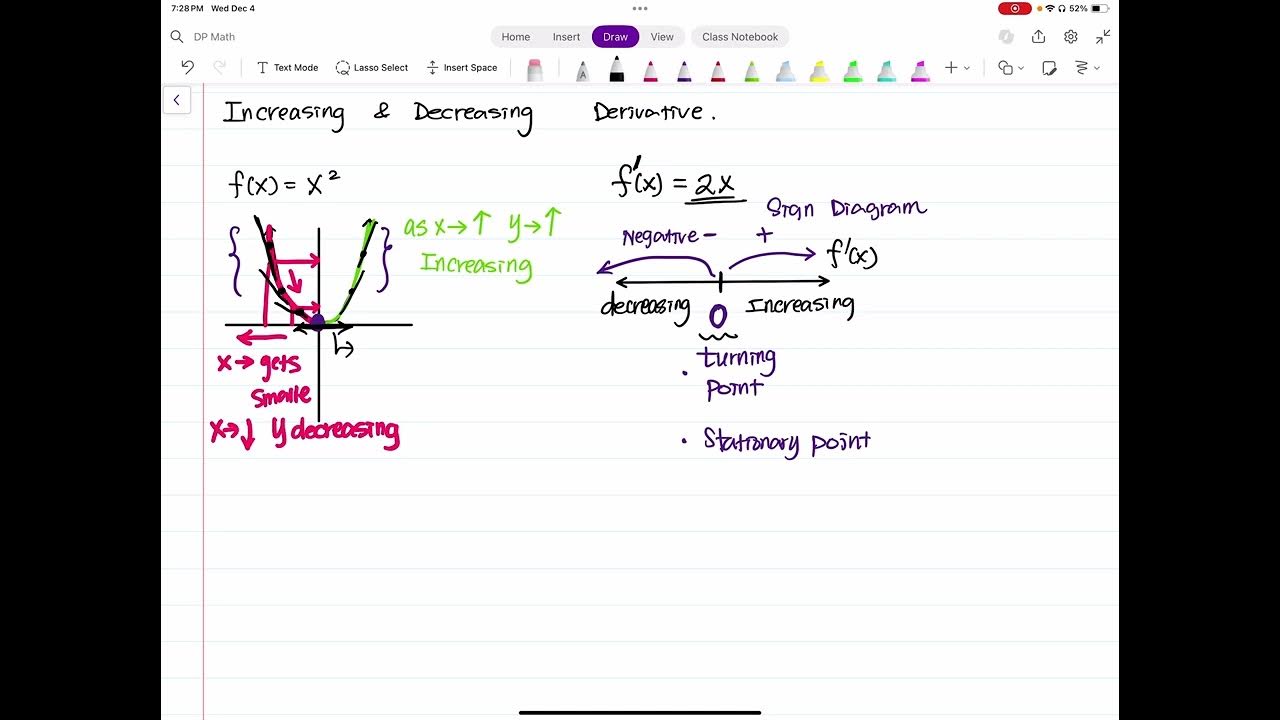 7:28 PM Wed Dec 4
52%
DP Math
Home Insert Draw View Class Notebook
Text Mode Lasso Select Insert Space
Increasing & Decreasing Derivative.
f(x) = x²
as x→↑ y→↑
Increasing
x→ gets
smalle
x→↓ y decreasing
f'(x) = 2x
Sign Diagram
Negative - +
f'(x)
decreasing 0 Increasing
• turning
point
• Stationary point